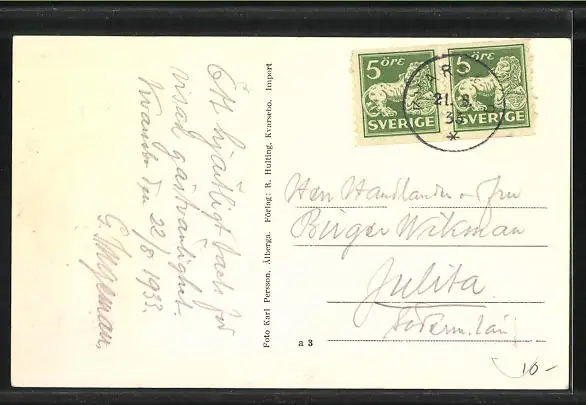 Ett hjärtligt tack för
visad gästvänlighet.
Kvarsebo den 22/8 1933.
G.
Foto Karl Persson, Ålberga. Förlag: R. Hulting, Kvarsebo. Import
5 ÖRE
SVERIGE
5 ÖRE
SVERIGE
21. 8.
33
Herr Handlanden o Fru
Birger Wikman
Julita
Söderm. län
a 3
10-